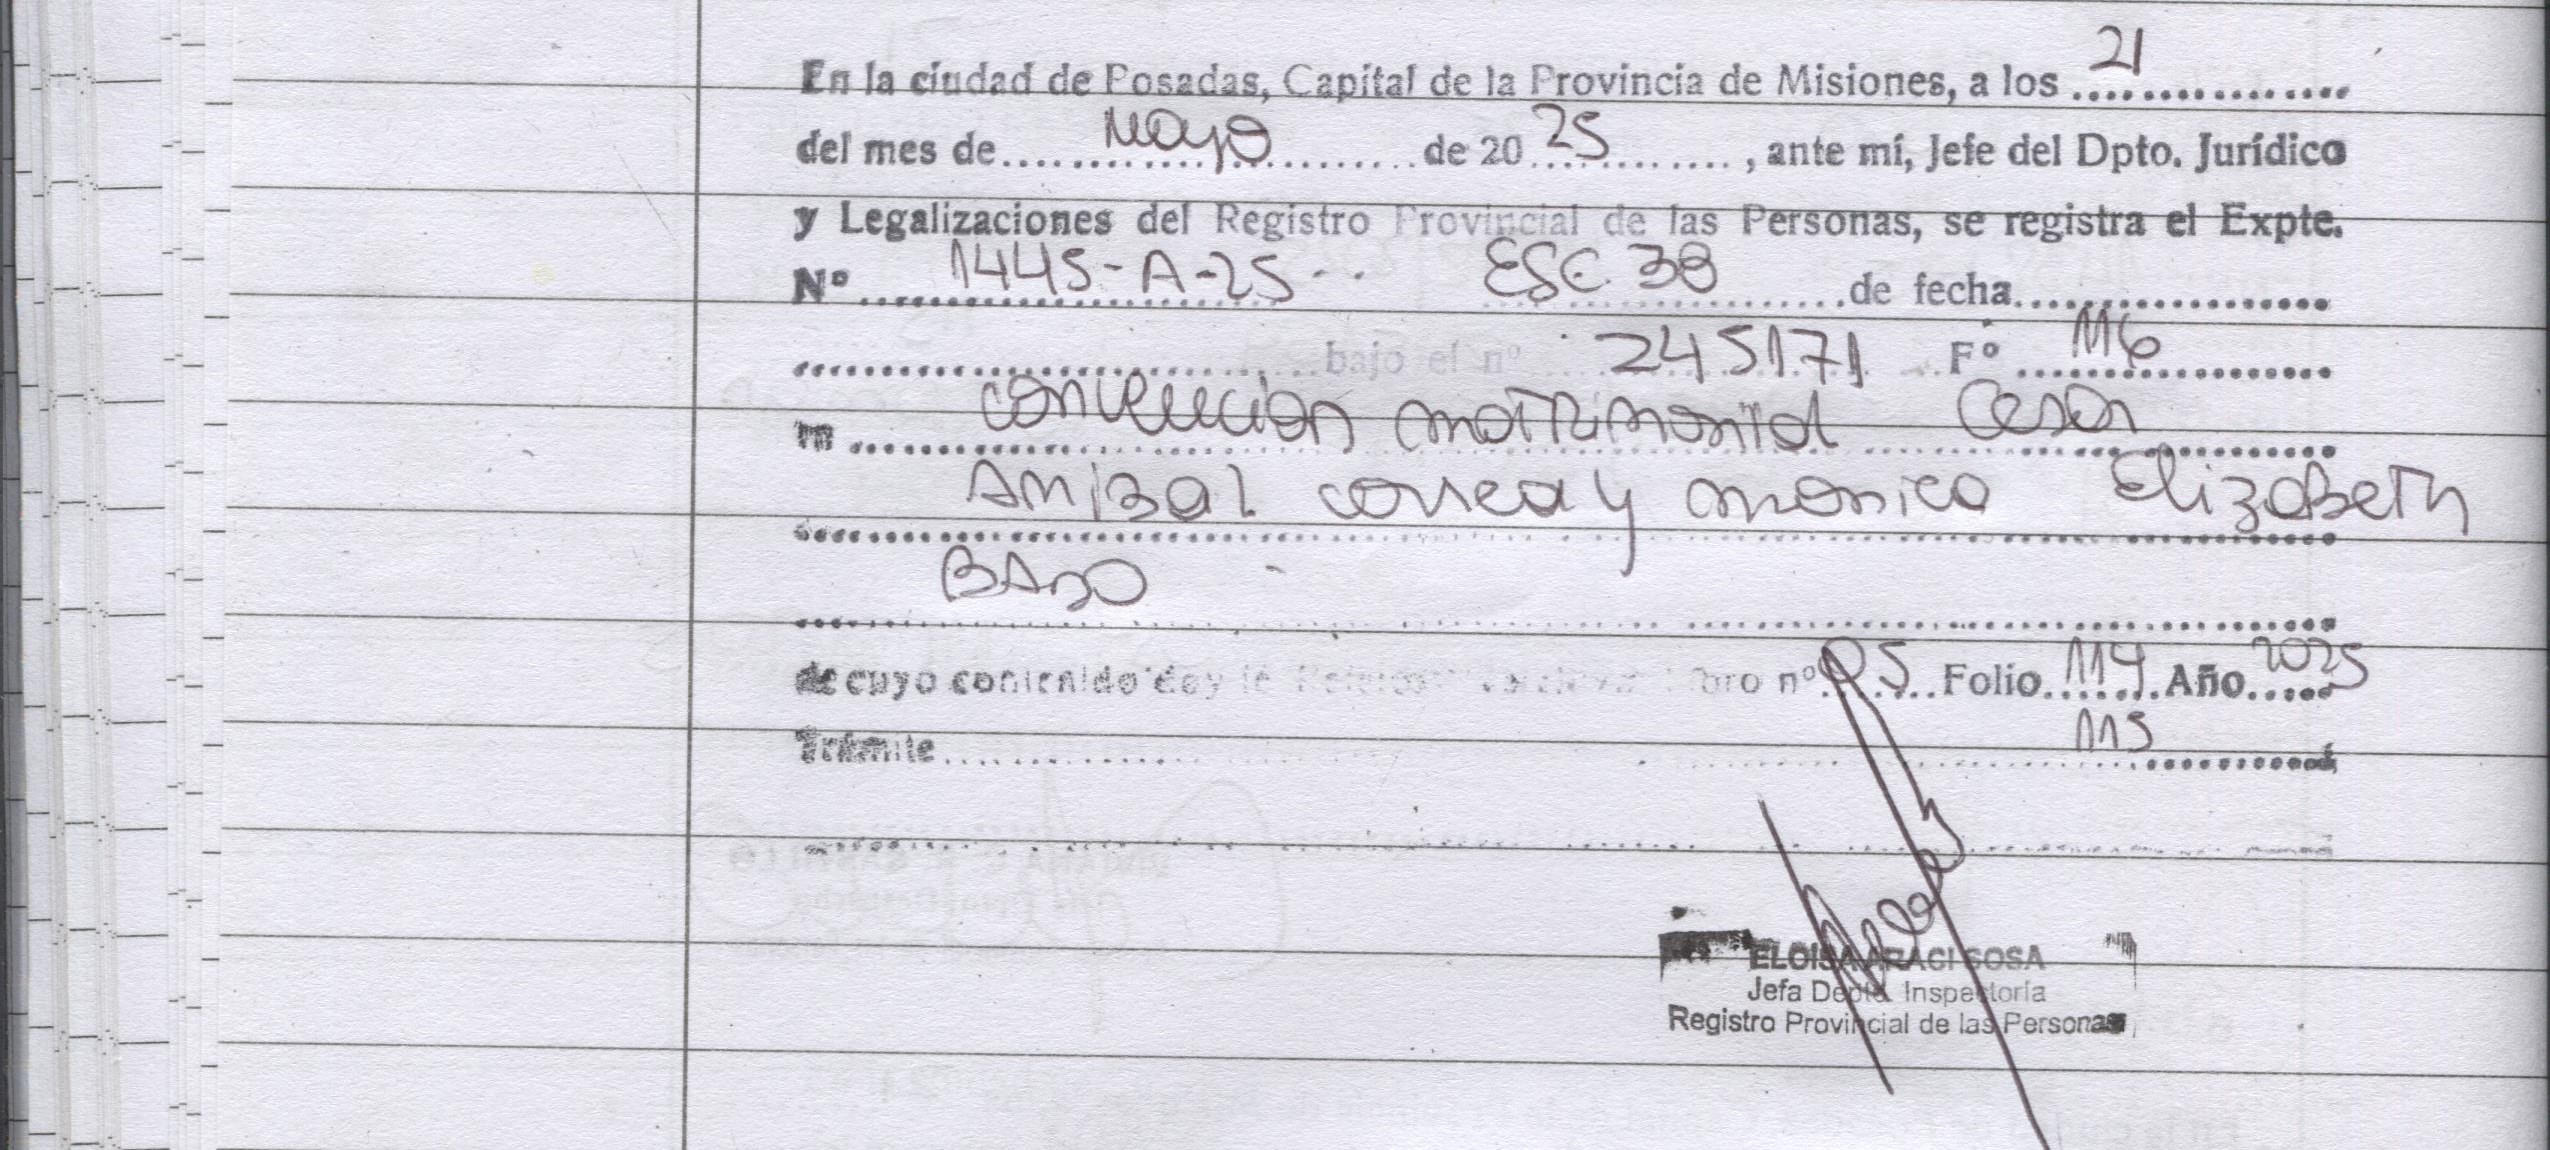 En la ciudad de Posadas, Capital de la Provincia de Misiones, a los 21
del mes de Mayo de 20 25, ante mí, Jefe del Dpto. Jurídico
y Legalizaciones del Registro Provincial de las Personas, se registra el Expte.
Nº 1445-A-25 -- ESC. 38 de fecha
bajo el nº 245171 Fº 116
convencion matrimonial Cesar
Anibal correa y monica Elizabeth
BADO -
de cuyo contenido doy fe nº 05 Folio 114 Año 2025
Trámite 115
ELOISA ARACI SOSA
Jefa Depto. Inspectoría
Registro Provincial de las Personas